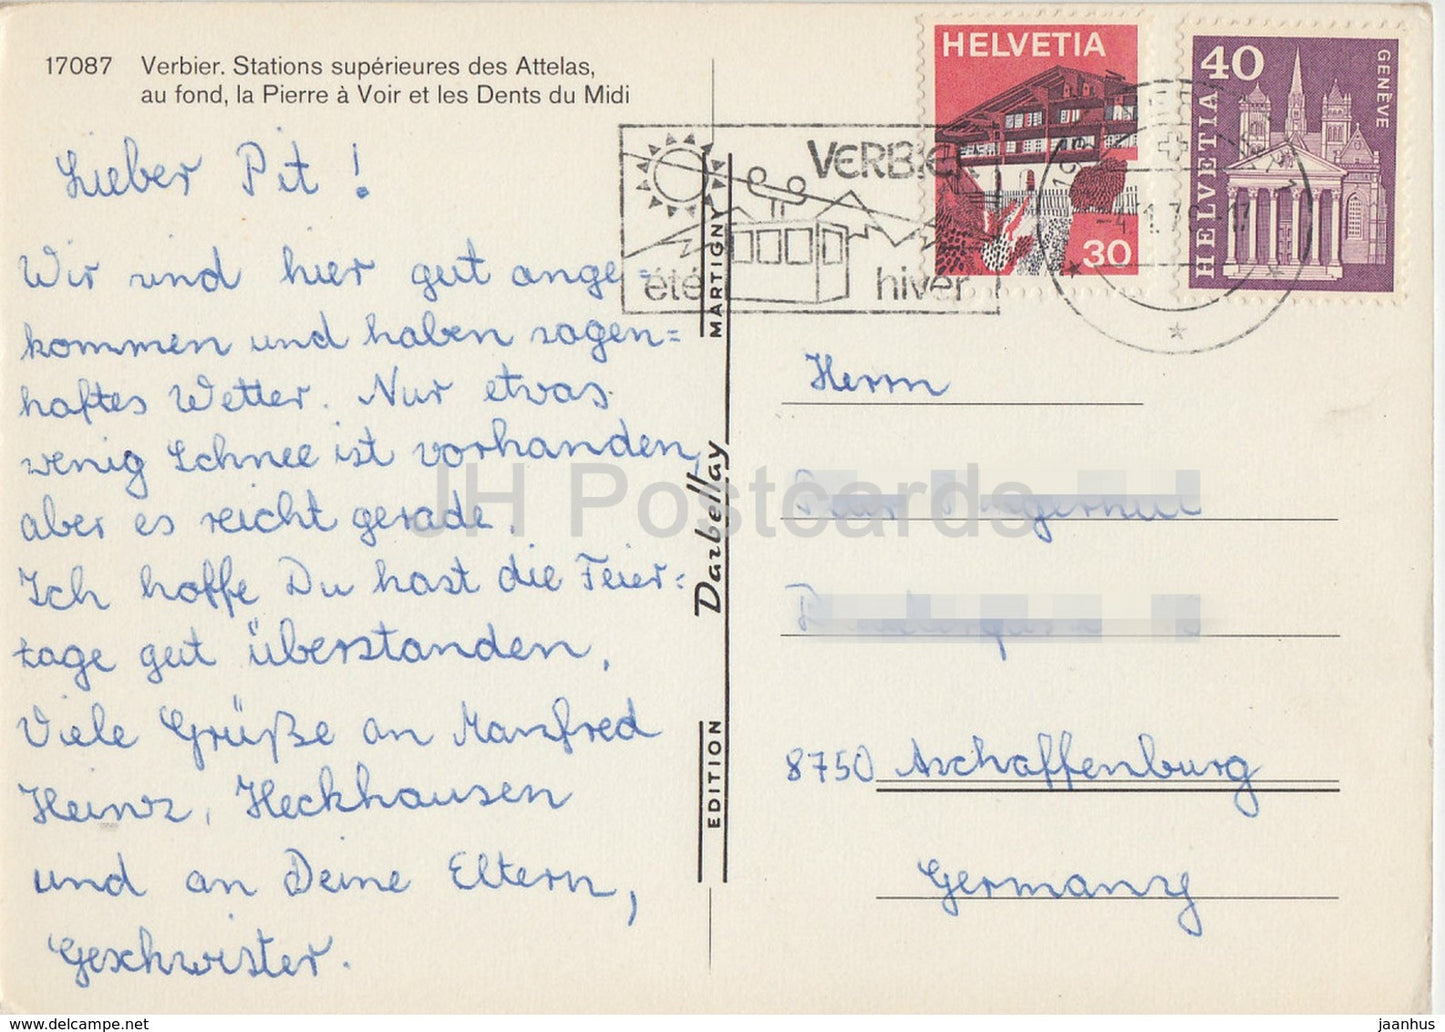 17087 Verbier. Stations supérieures des Attelas,
au fond, la Pierre à Voir et les Dents du Midi
Lieber Pit!
Wir sind hier gut ange=
kommen und haben sagen=
haftes Wetter. Nur etwas
wenig Schnee ist vorhanden,
aber es reicht gerade.
Ich hoffe Du hast die Feier=
tage gut überstanden.
Viele Grüße an Manfred
Heinz, Heckhausen
und an Deine Eltern,
Geschwister.
EDITION Darbellay MARTIGNY
VERBIER
été hiver
HELVETIA
30
40
HELVETIA
GENÈVE
Herrn
8750 Aschaffenburg
Germany
JH Postcards
jaanhus